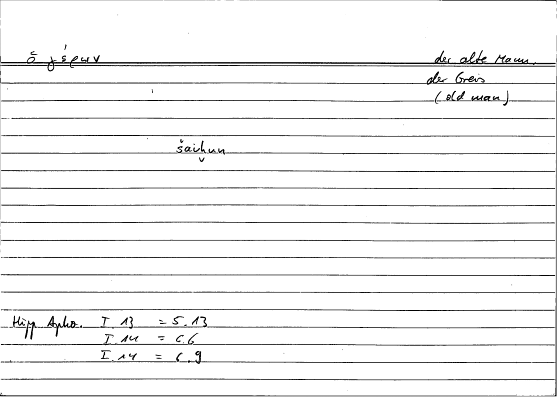 ὁ γέρων der alte Mann,
der Greis
(old man)
šaiḫun
Hipp. Apho. I. 13 = 5.13
I. 14 = 6.6
I. 14 = 6.9